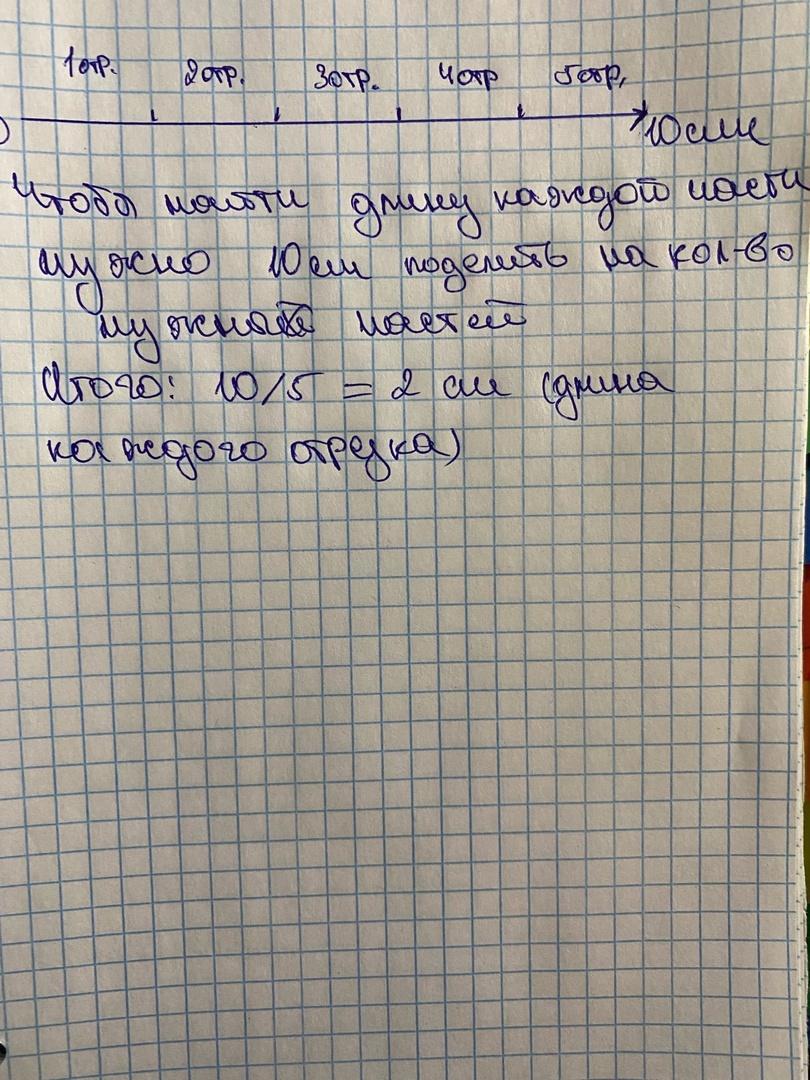 1 отр. 2 отр. 3 отр. 4 отр 5 отр.
0 10 см
Чтобы найти длину каждой части
нужно 10 см поделить на кол-во
нужной частей
Итого: 10/5 = 2 см (длина
каждого отрезка)